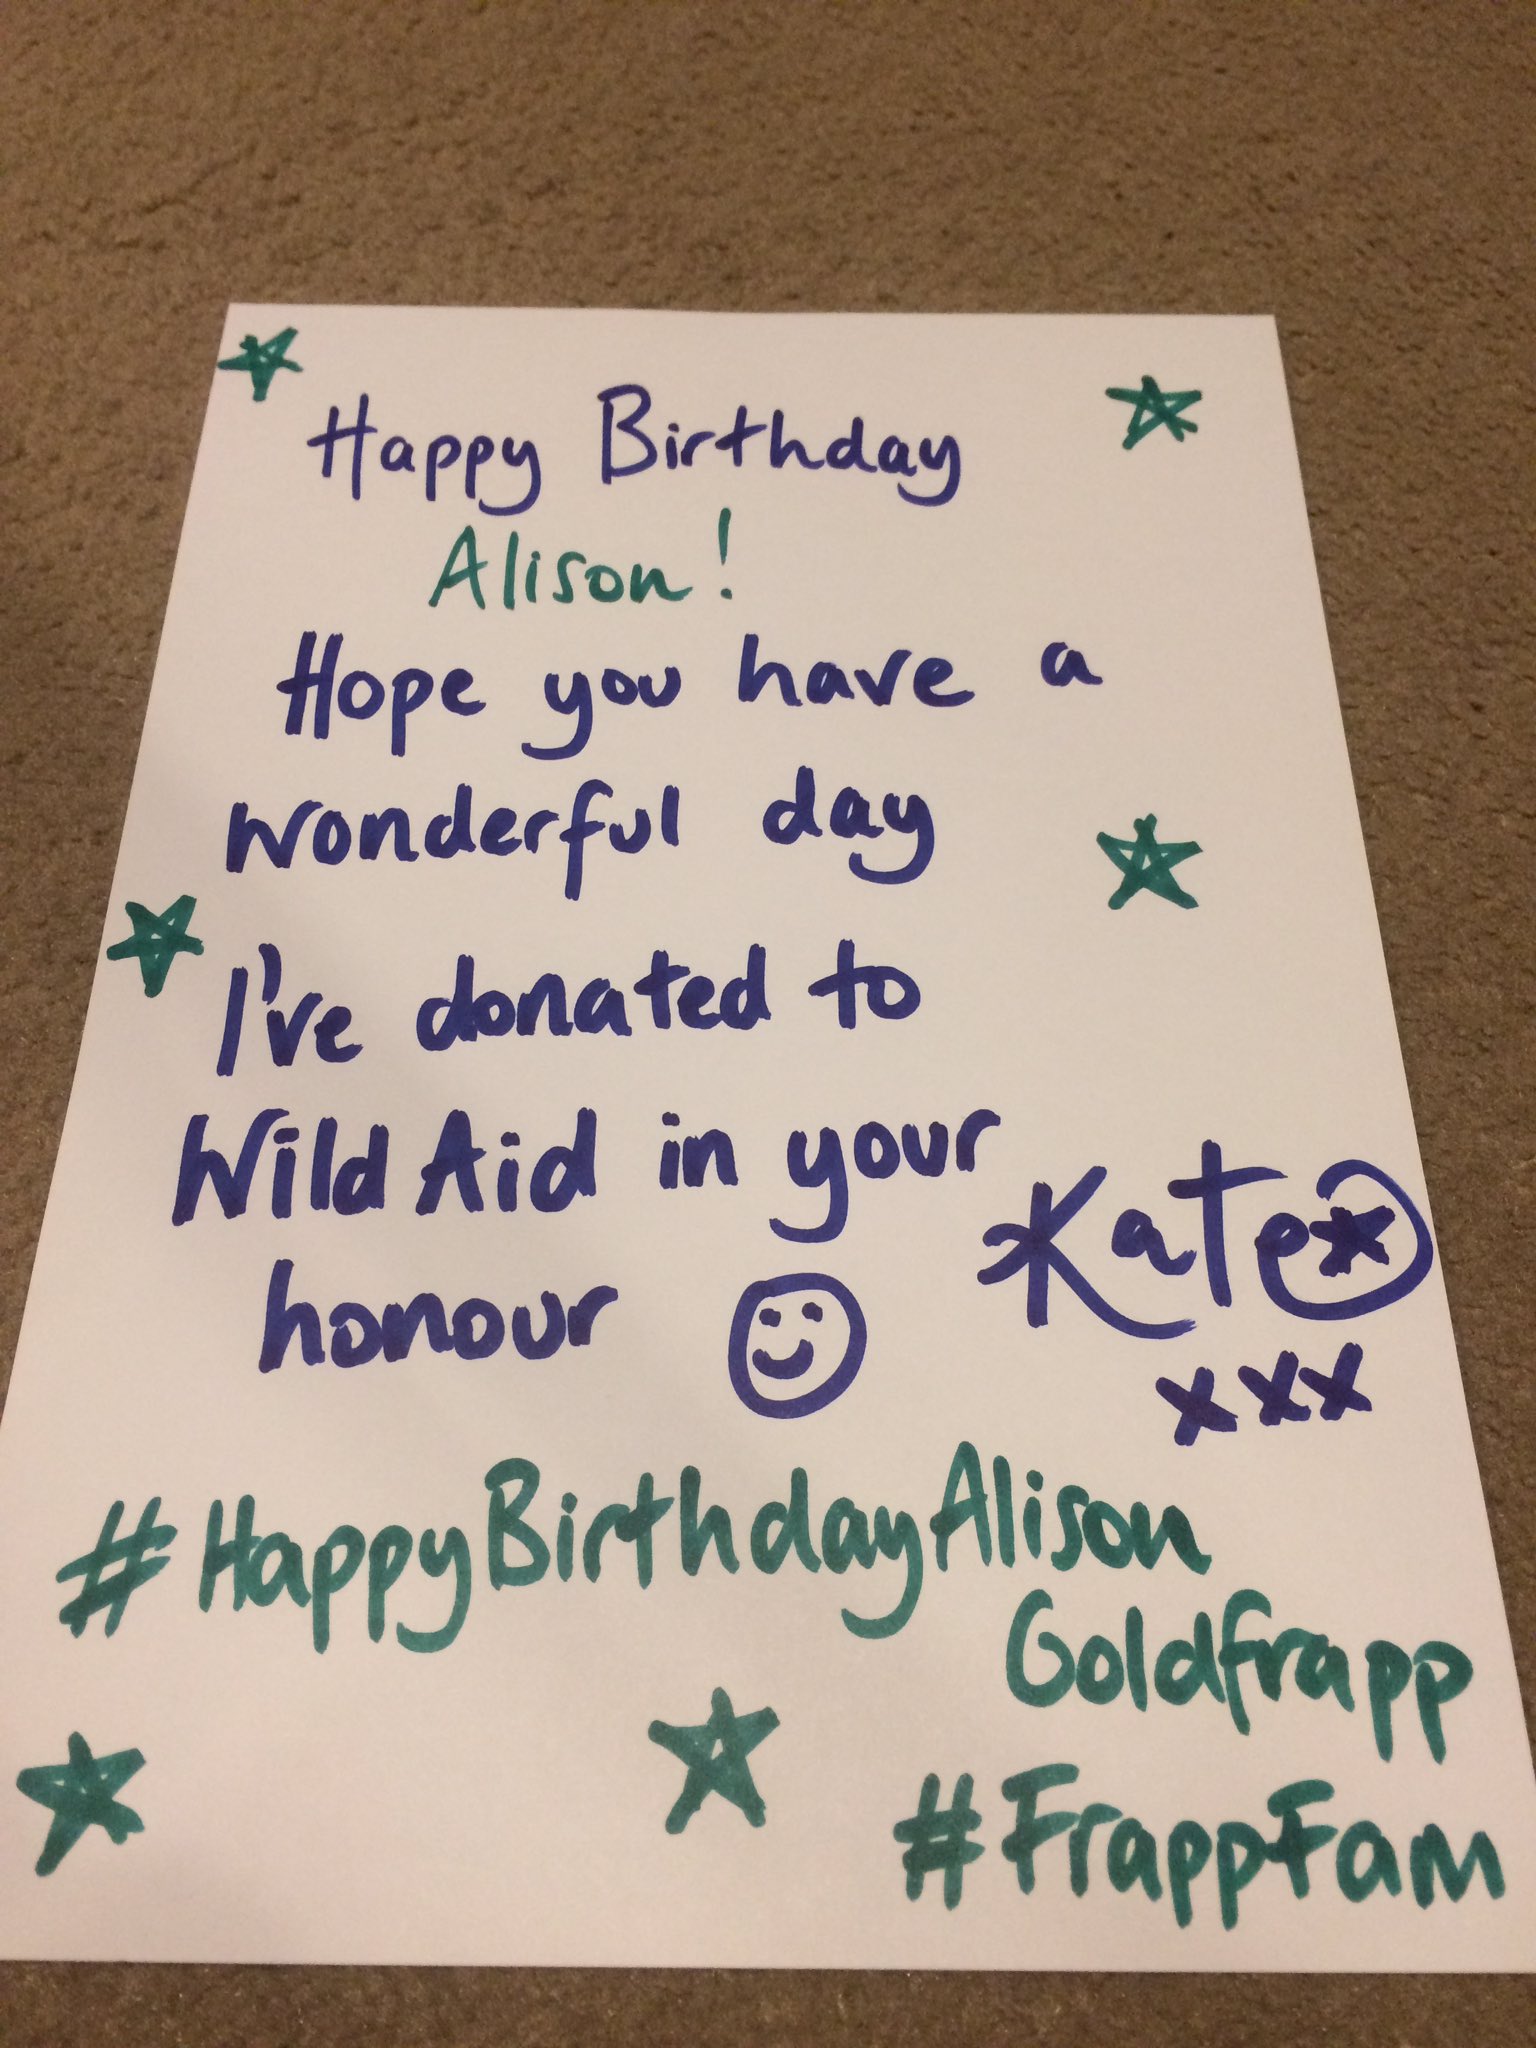 Happy Birthday
Alison!
Hope you have a
wonderful day
I've donated to
Wild Aid in your
honour
Kate
xxx
#HappyBirthdayAlison
Goldfrapp
#FrappFam